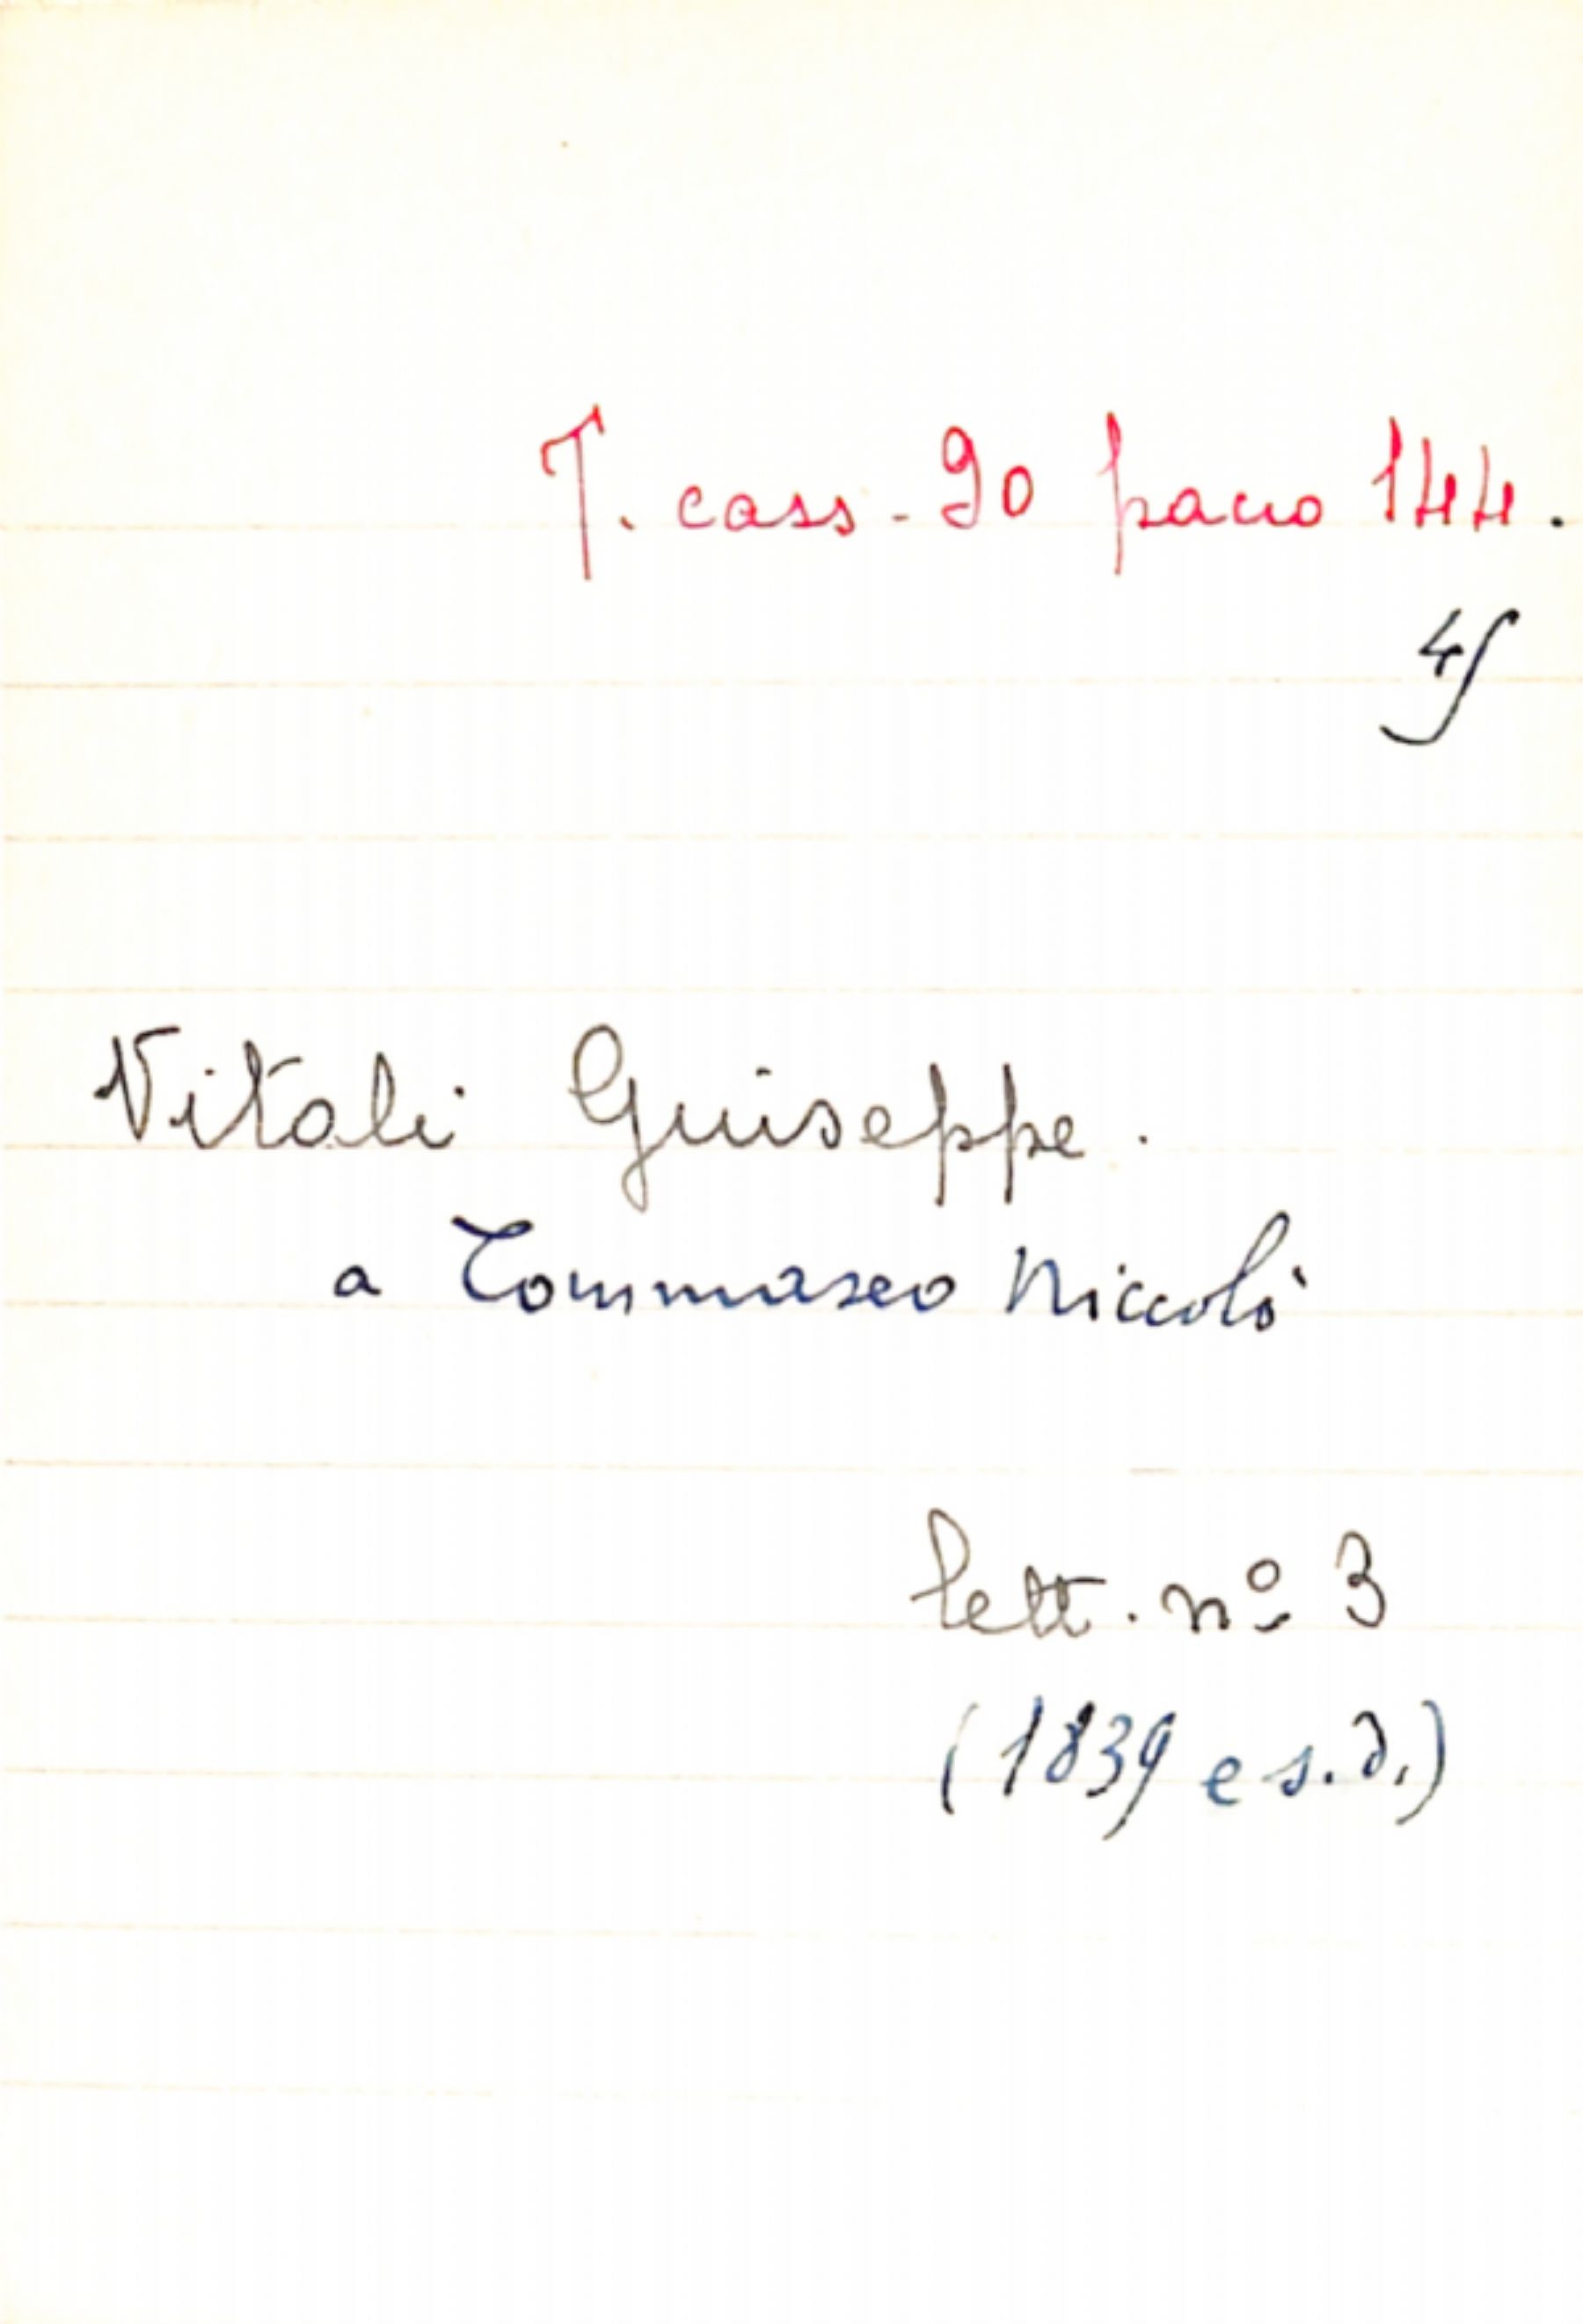 T. cass. 90 pacco 144.
45
Vitali Giuseppe.
a Tommaseo Niccolò
lett. nº 3
(1839 e s.d.)